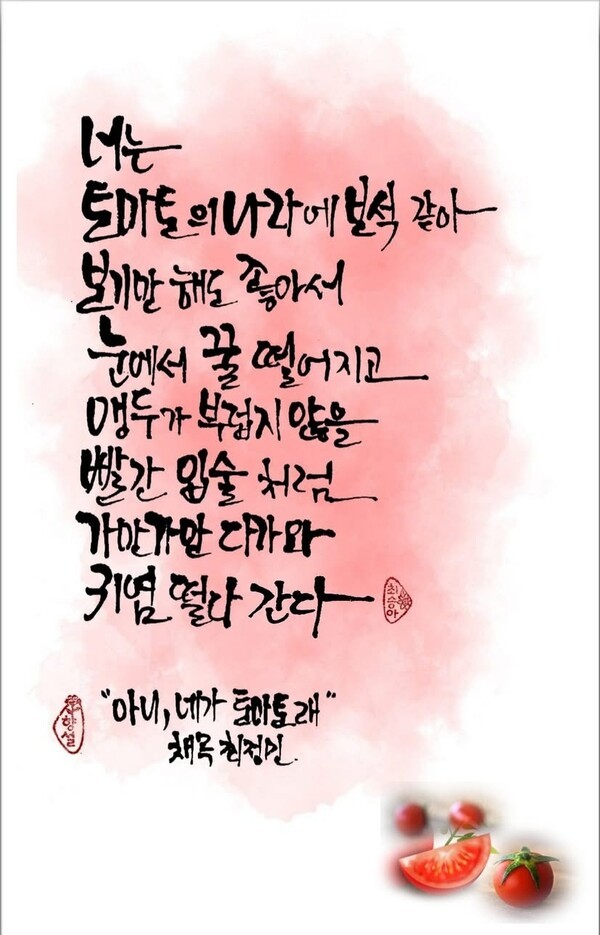 너는
토마토의 나라에 보석 같아
보기만 해도 좋아서
눈에서 꿀 떨어지고
앵두가 부럽지 않을
빨간 입술 처럼
가만가만 다가와
귀염 떨다 간다
최승아
"아니, 네가 토마토래"
채목 최정인.
향설